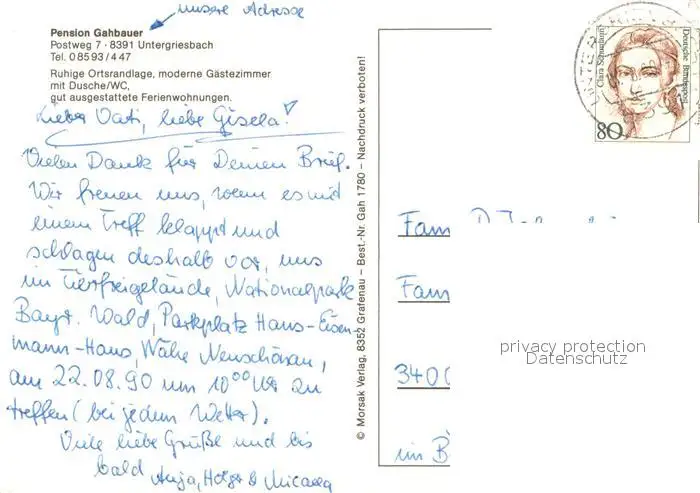 unsere Adresse
Pension Gahbauer
Postweg 7 · 8391 Untergriesbach
Tel. 0 85 93 / 4 47
Ruhige Ortsrandlage, moderne Gästezimmer
mit Dusche/WC,
gut ausgestattete Ferienwohnungen.
Lieber Vati, liebe Gisela!
Vielen Dank für Deinen Brief.
Wir freuen uns, wenn es mit
einem Treff klappt und
schlagen deshalb vor, uns
im Tierfreigelände, Nationalpark
Bayr. Wald, Parkplatz Hans-Eisen-
mann-Haus, Nähe Neuschönau,
am 22.08.90 um 10⁰⁰ Uhr zu
treffen (bei jedem Wetter).
Viele liebe Grüße und bis
bald Anja, Holger & Micaela
© Morsak Verlag, 8352 Grafenau – Best.-Nr. Gah 1780 – Nachdruck verboten!
Clara Schumann
Deutsche Bundespost
80
Fam
Fam
3400
im B
privacy protection
Datenschutz